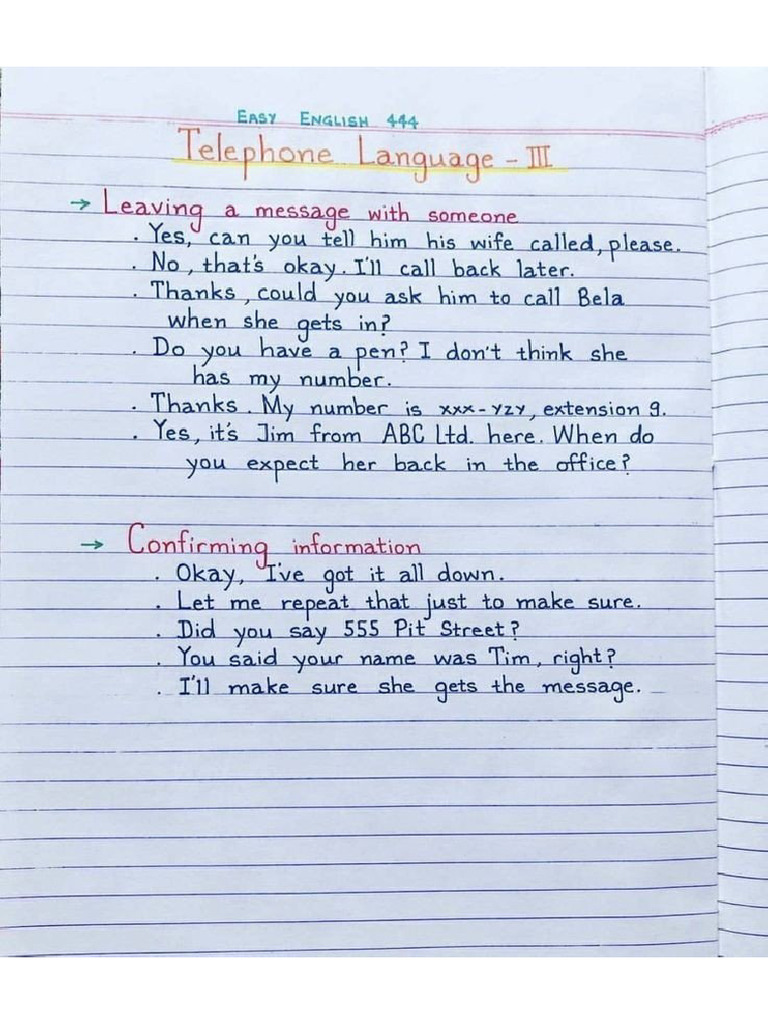 EASY ENGLISH 444
Telephone Language - III
→ Leaving a message with someone
. Yes, can you tell him his wife called, please.
. No, that's okay. I'll call back later.
. Thanks, could you ask him to call Bela
when she gets in?
. Do you have a pen? I don't think she
has my number.
. Thanks. My number is xxx-yzy, extension 9.
. Yes, it's Jim from ABC Ltd. here. When do
you expect her back in the office?
→ Confirming information
. Okay, I've got it all down.
. Let me repeat that just to make sure.
. Did you say 555 Pit Street?
. You said your name was Tim, right?
. I'll make sure she gets the message.